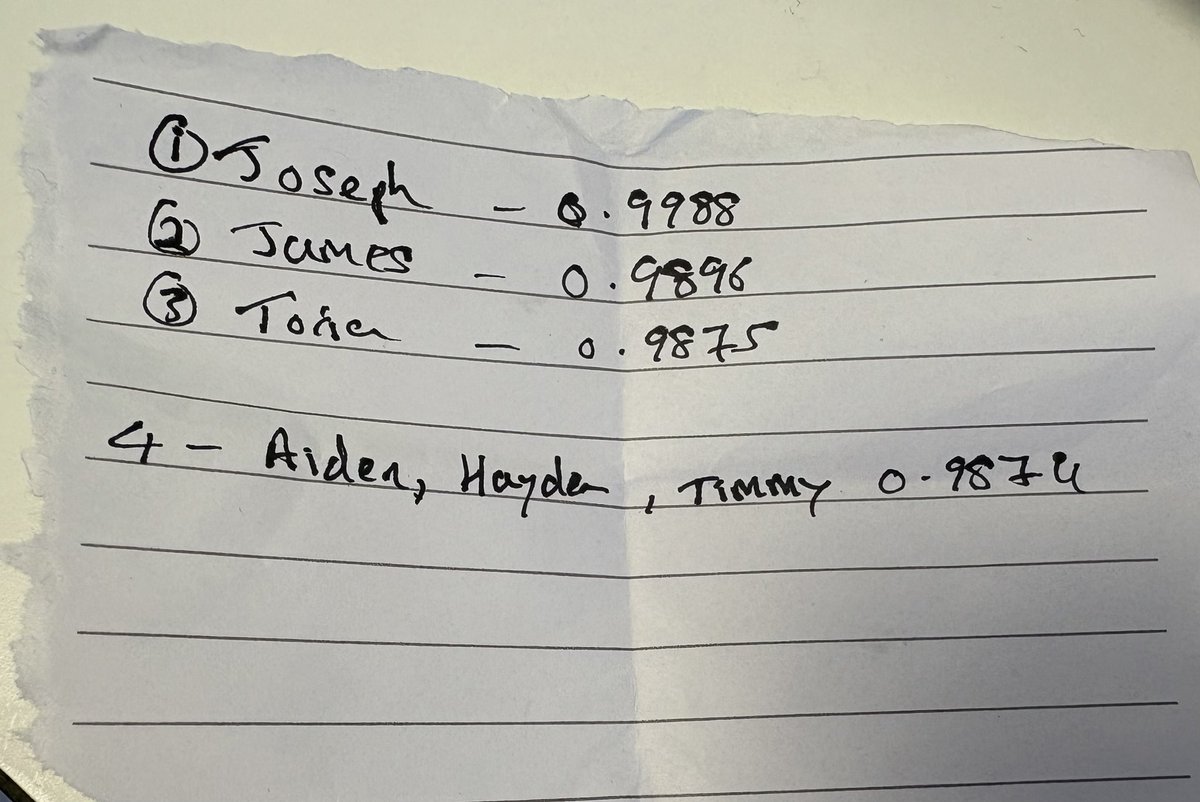 ① Joseph - 0.9988
② James - 0.9896
③ - 0.9875
4 - Aiden, Hayden, Timmy 0.9874